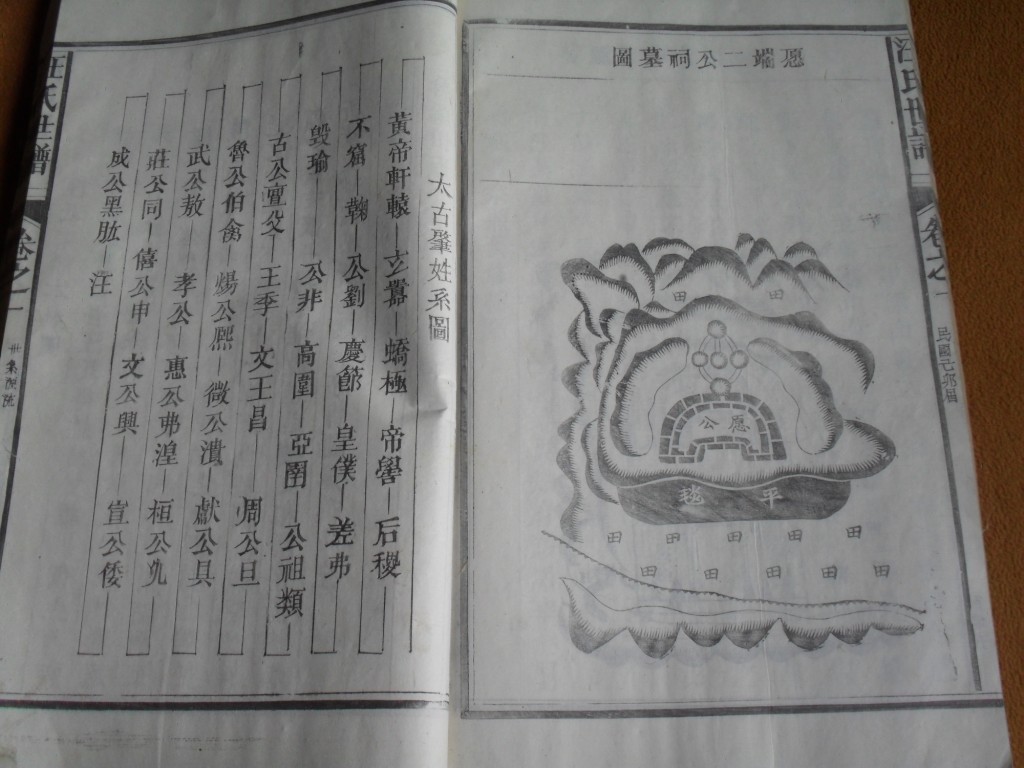 汪氏世譜
卷之一
二公祠墓圖
田 田
公
平
田 田 田 田 田
田 田 田 田 田
太古肇姓系圖
黃帝軒轅 玄囂 蟜極 帝嚳 后稷
不窋 鞠 公劉 慶節 皇僕 差弗
毀瑜 公非 高圉 亞圉 公祖類
古公亶父 王季 文王昌 周公旦
魯公伯禽 煬公熙 微公潰 獻公具
武公敖 孝公 惠公弗湟 桓公允
莊公同 僖公申 文公興 宣公倭
成公黑肱 汪
汪氏世譜
卷之一